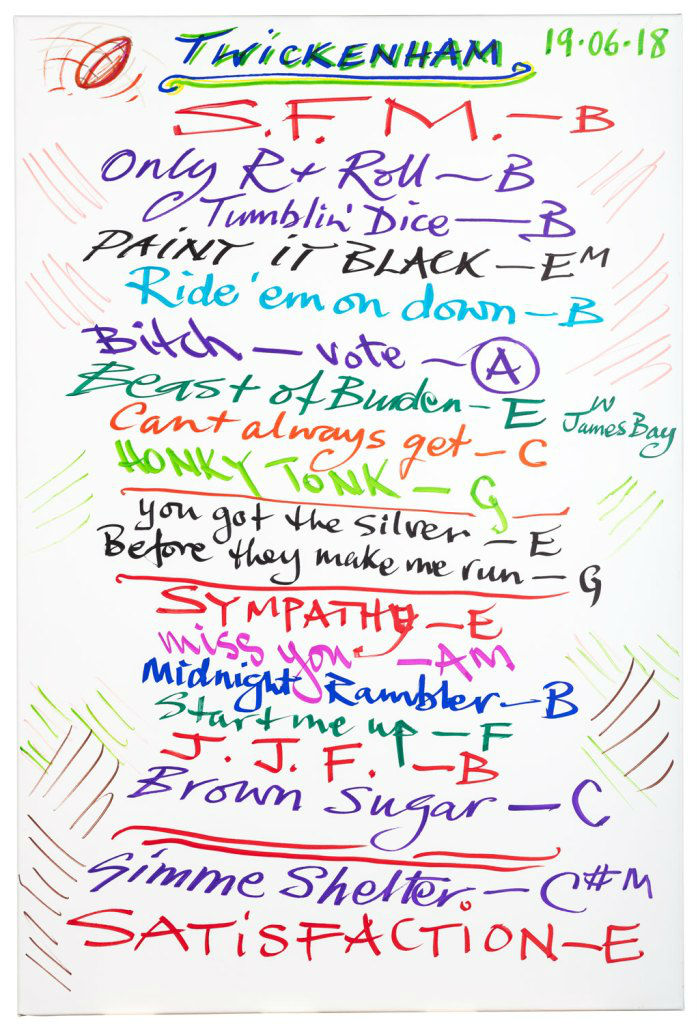 TWICKENHAM
19·06·18
S.F.M.-B
Only R+Roll-B
Tumblin' Dice-B
PAINT iT BLACK-EM
Ride 'em on down-B
Bitch-vote-A
Beast of Burden-E
W James Bay
Cant always get-C
HONKY TONK-G
you got the silver-E
Before they make me run-G
SYMPATHY-E
miss you-AM
Midnight Rambler-B
Start me up-F
J.J.F.-B
Brown Sugar-C
Gimme Shelter.-C#M
SATiSFACTiON-E